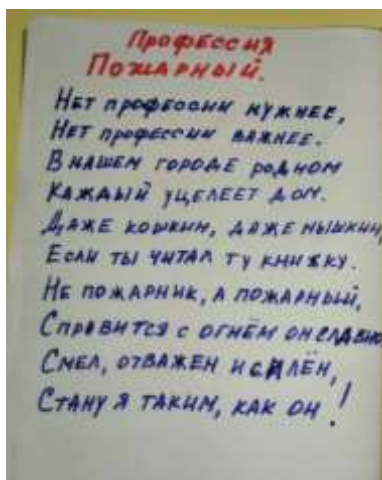 Профессия
Пожарный.
Нет профессии нужнее,
Нет профессии важнее.
В нашем городе родном
Каждый уцелеет дом.
Даже кошкин, даже мышкин,
Если ты читал ту книжку.
Не пожарник, а пожарный,
Справится с огнём он славно
Смел, отважен и силён,
Стану я таким, как он!